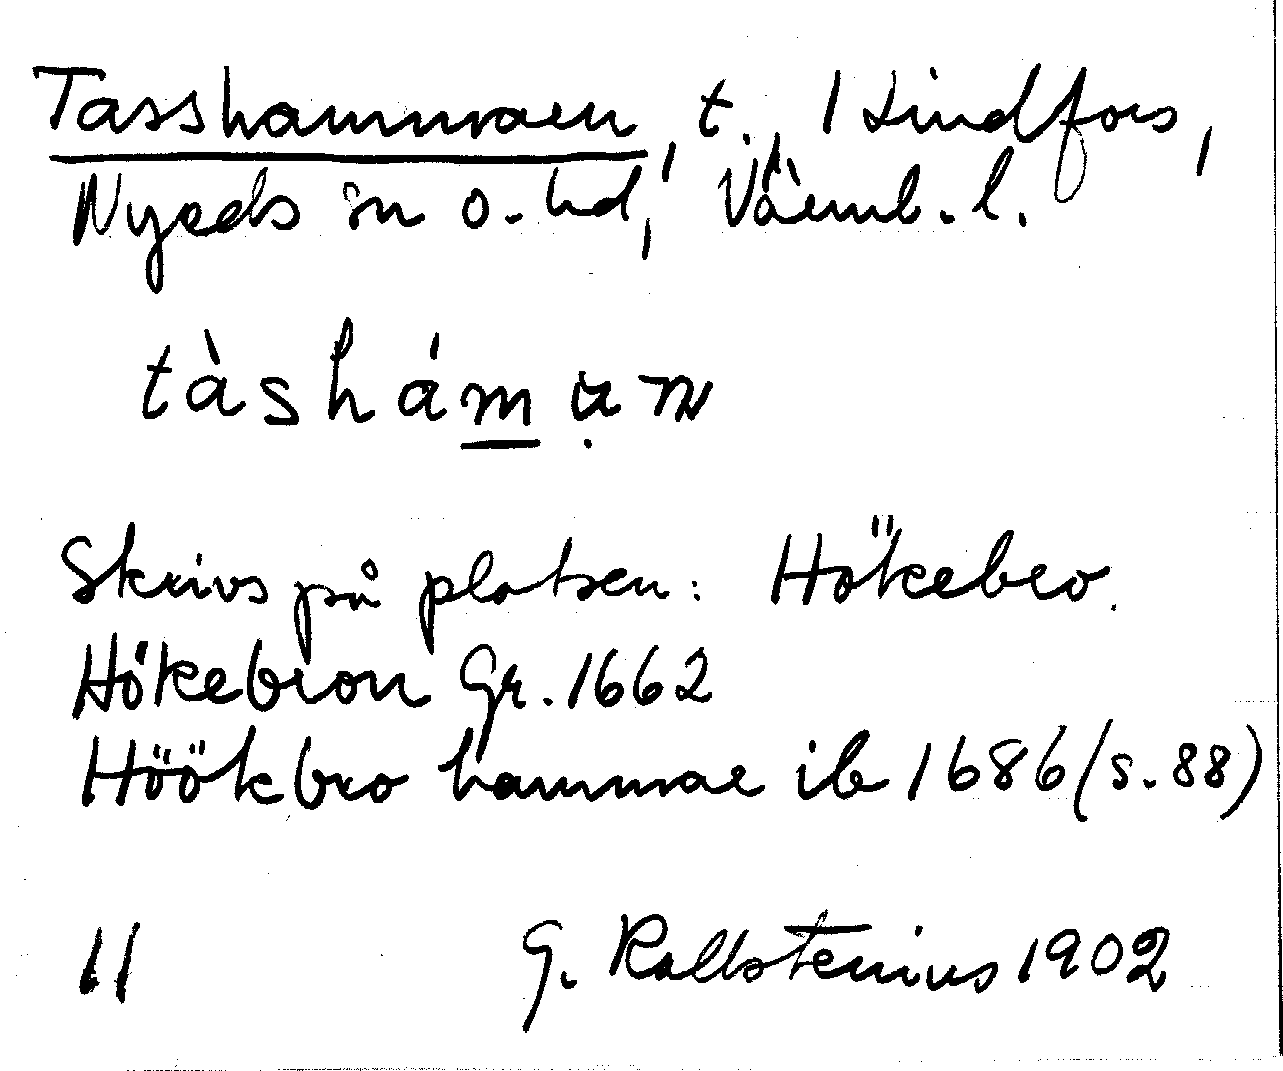 Tasshammaren, t. 1 Lindfors,
Nyeds sn o. hd, Värml. l.
tàshámạṛn
Skrivs på platsen: Hökebro.
Hökebron Gr. 1662
Höökbro hammar ib 1686 (s. 88)
11 G. Kallstenius 1902